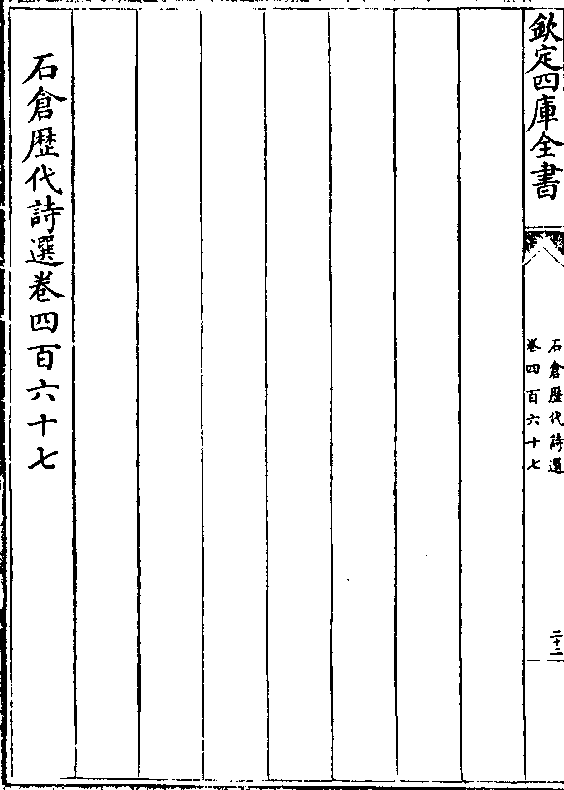 欽定四庫全書
石倉歷代詩選
卷四百六十七
二十二
石倉歷代詩選卷四百六十七